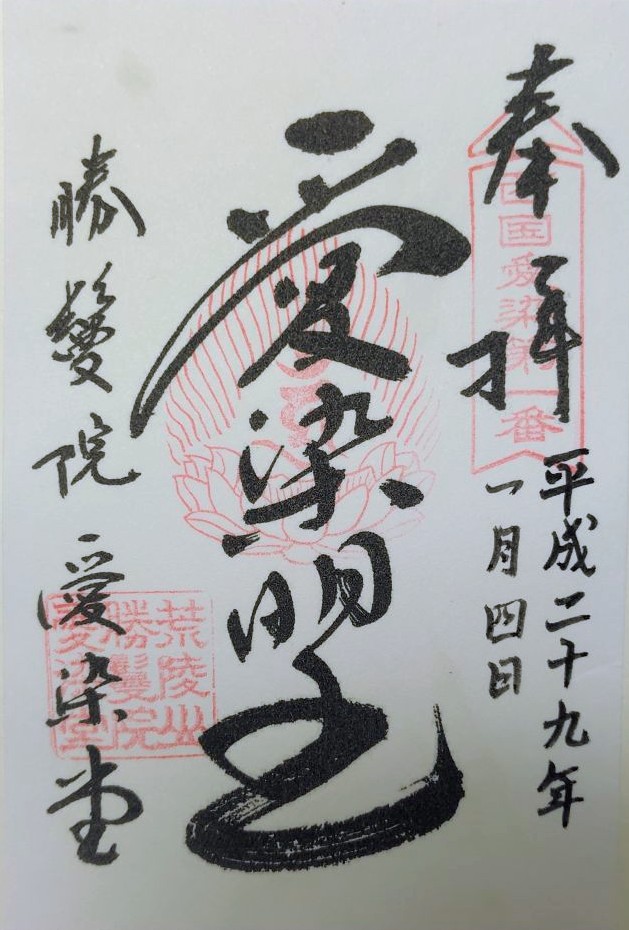 奉拝
西国愛染第一番
平成二十九年
一月四日
愛染明王
勝鬘院 愛染堂
荒陵山
勝鬘院
愛染堂